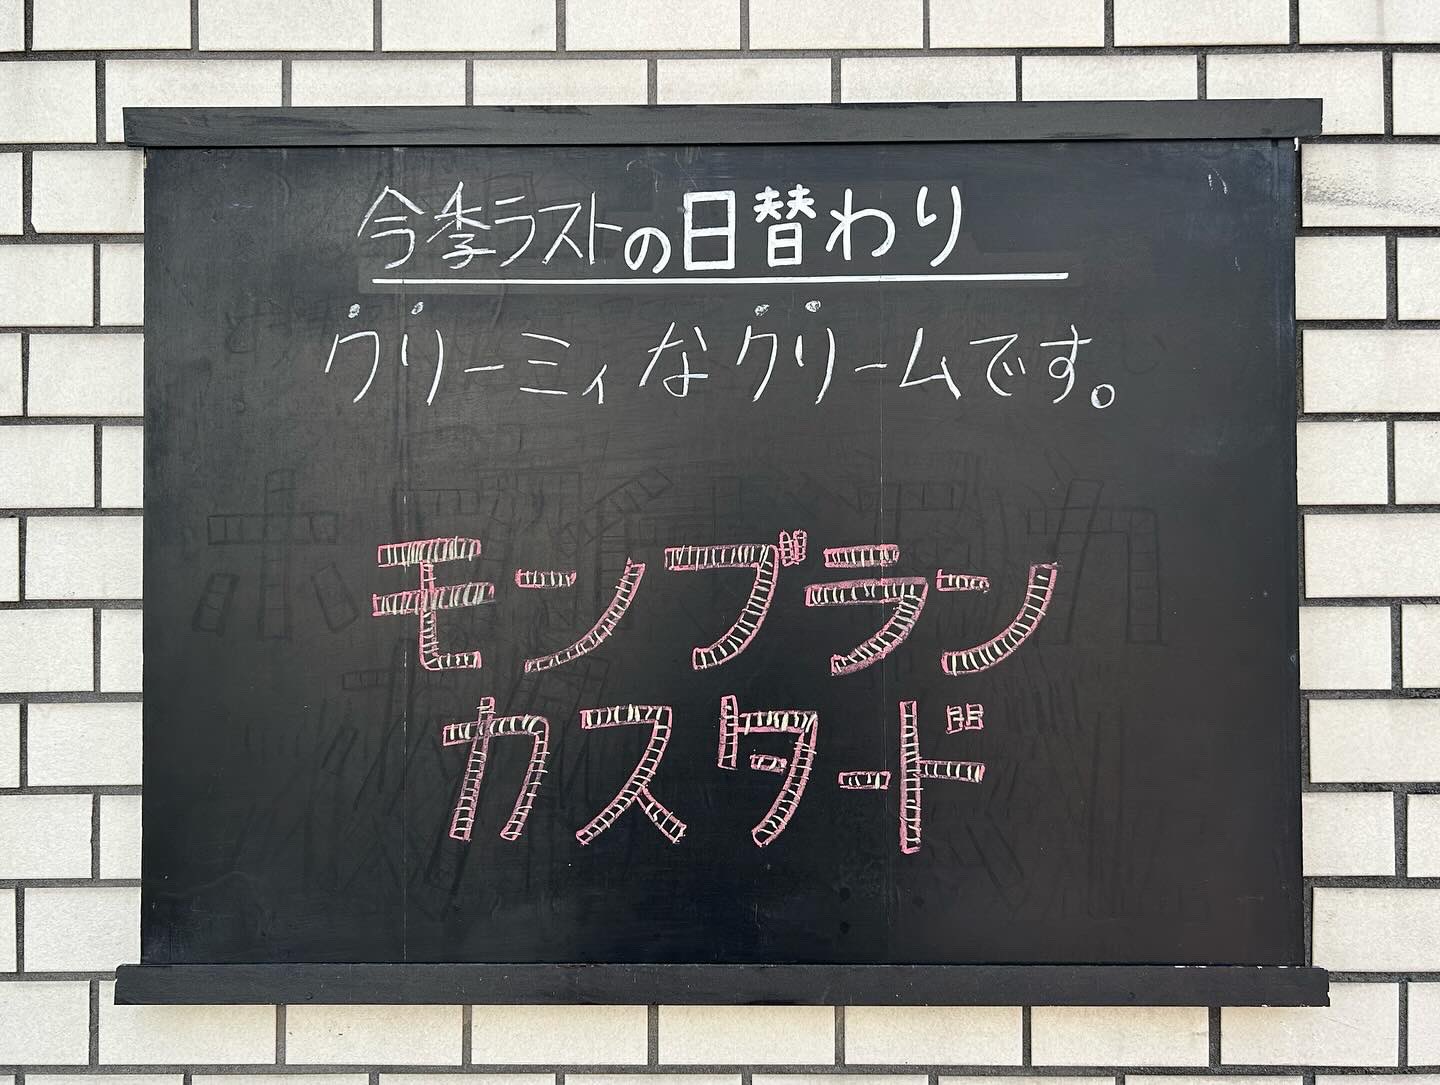 今季ラストの日替わり
クリーミィなクリームです。
モンブラン
カスタード